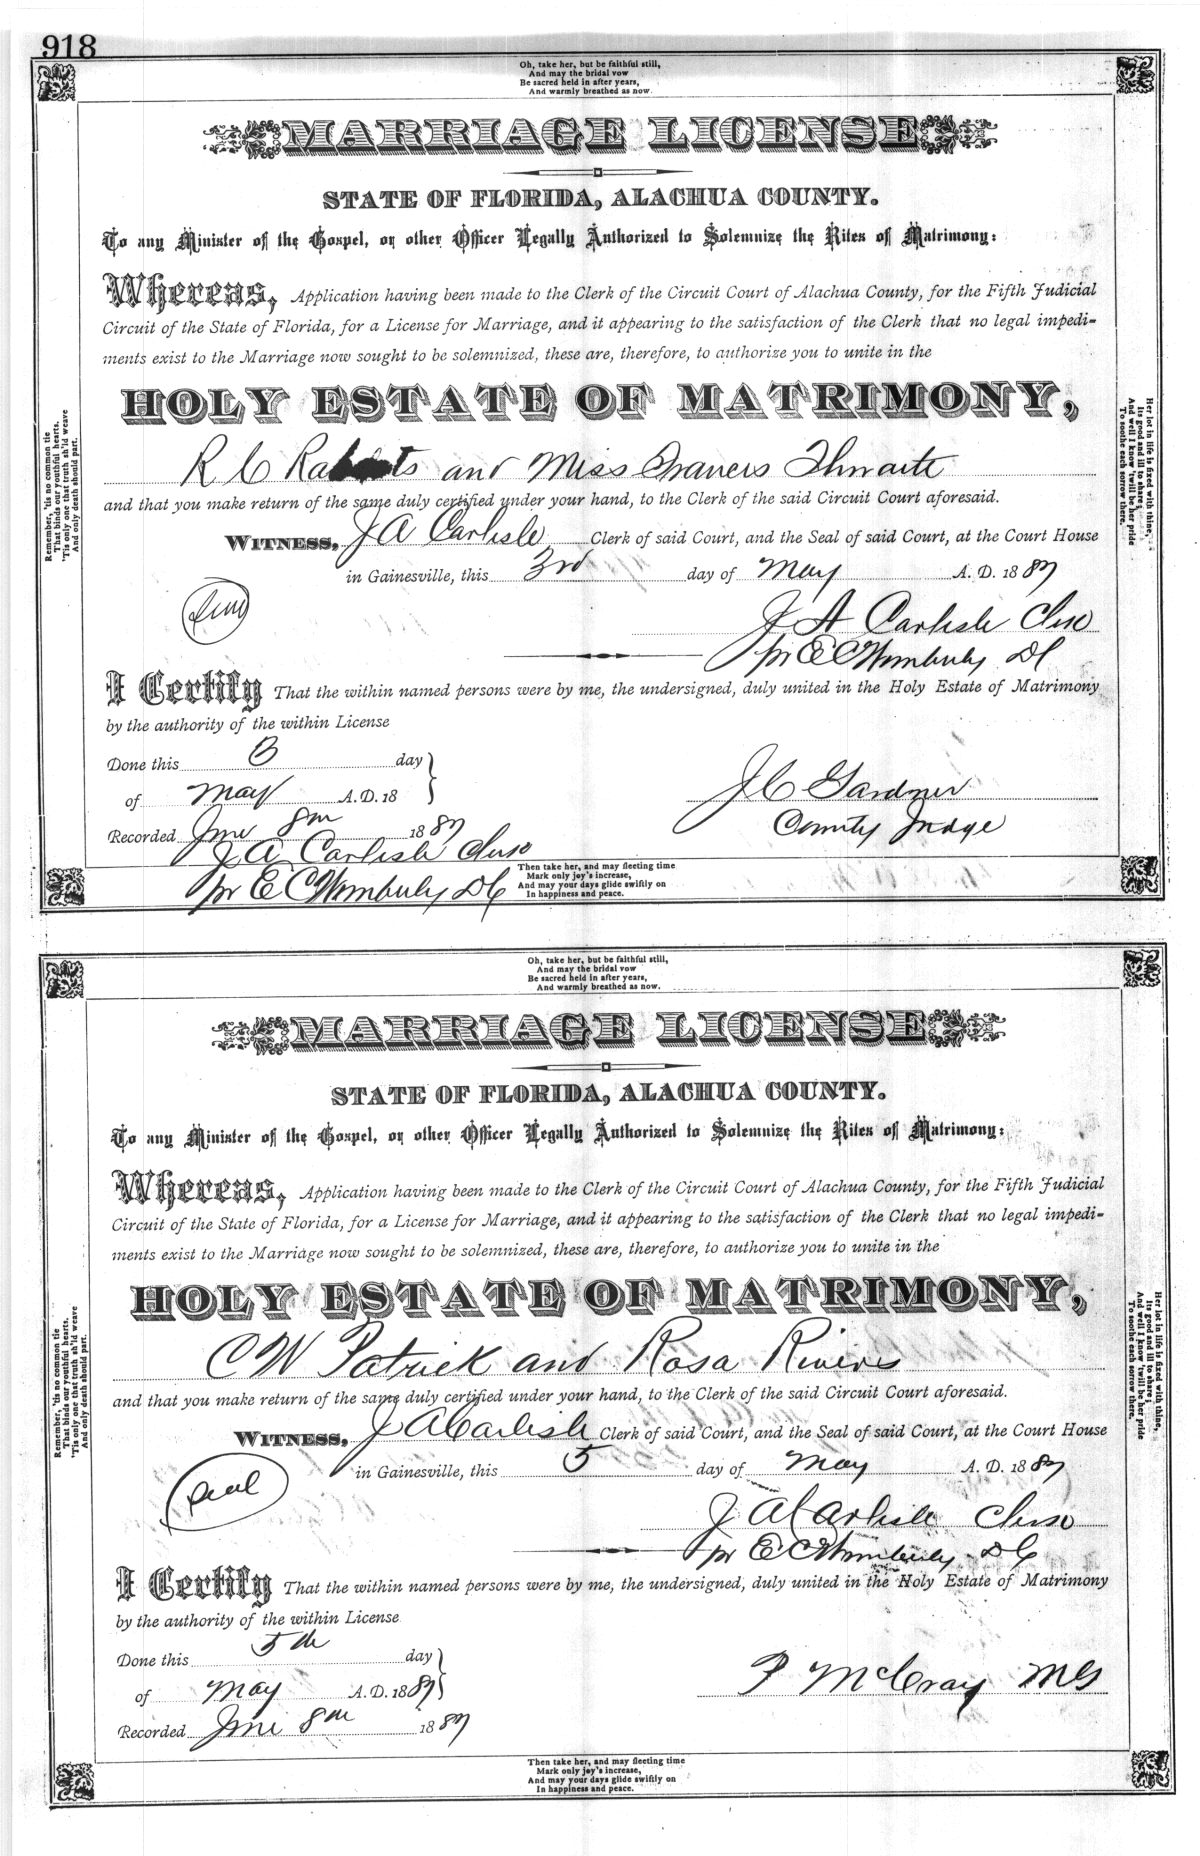 918
Oh, take her, but be faithful still,
And may the bridal vow
Be sacred held in after years,
And warmly breathed as now.
MARRIAGE LICENSE
STATE OF FLORIDA, ALACHUA COUNTY.
To any Minister of the Gospel, or other Officer Legally Authorized to Solemnize the Rites of Matrimony:
Whereas, Application having been made to the Clerk of the Circuit Court of Alachua County, for the Fifth Judicial
Circuit of the State of Florida, for a License for Marriage, and it appearing to the satisfaction of the Clerk that no legal impedi-
ments exist to the Marriage now sought to be solemnized, these are, therefore, to authorize you to unite in the
HOLY ESTATE OF MATRIMONY,
R C and Miss Francis Thwaite
and that you make return of the same duly certified under your hand, to the Clerk of the said Circuit Court aforesaid.
WITNESS, J A Carlisle Clerk of said Court, and the Seal of said Court, at the Court House
in Gainesville, this 3rd day of May A. D. 1887
Seal
J A Carlisle Clerk
pr E C Wimberly DC
I Certify That the within named persons were by me, the undersigned, duly united in the Holy Estate of Matrimony
by the authority of the within License
Done this 3 day
of May A.D. 18
J C Gardner
County Judge
Recorded June 8th 1887
J A Carlisle Clerk
pr E C Wimberly DC
Then take her, and may fleeting time
Mark only joy's increase,
And may your days glide swiftly on
In happiness and peace.
Remember, 'tis no common tie
That binds our youthful hearts.
'Tis only one that truth sh'ld weave
And only death should part.
Her lot in life is fixed with thine,
Its good and ill to share;
And well I know 'twill be her pride
To soothe each sorrow there.
Oh, take her, but be faithful still,
And may the bridal vow
Be sacred held in after years,
And warmly breathed as now.
MARRIAGE LICENSE
STATE OF FLORIDA, ALACHUA COUNTY.
To any Minister of the Gospel, or other Officer Legally Authorized to Solemnize the Rites of Matrimony:
Whereas, Application having been made to the Clerk of the Circuit Court of Alachua County, for the Fifth Judicial
Circuit of the State of Florida, for a License for Marriage, and it appearing to the satisfaction of the Clerk that no legal impedi-
ments exist to the Marriage now sought to be solemnized, these are, therefore, to authorize you to unite in the
HOLY ESTATE OF MATRIMONY,
C W Patrick and Rosa Rivers
and that you make return of the same duly certified under your hand, to the Clerk of the said Circuit Court aforesaid.
WITNESS, J A Carlisle Clerk of said Court, and the Seal of said Court, at the Court House
in Gainesville, this 5 day of May A. D. 1887
Seal
J A Carlisle Clerk
pr E C Wimberly DC
I Certify That the within named persons were by me, the undersigned, duly united in the Holy Estate of Matrimony
by the authority of the within License
Done this 5th day
of May A.D. 1887
P McCray MG
Recorded June 8th 1887
Then take her, and may fleeting time
Mark only joy's increase,
And may your days glide swiftly on
In happiness and peace.
Remember, 'tis no common tie
That binds our youthful hearts.
'Tis only one that truth sh'ld weave
And only death should part.
Her lot in life is fixed with thine,
Its good and ill to share;
And well I know 'twill be her pride
To soothe each sorrow there.